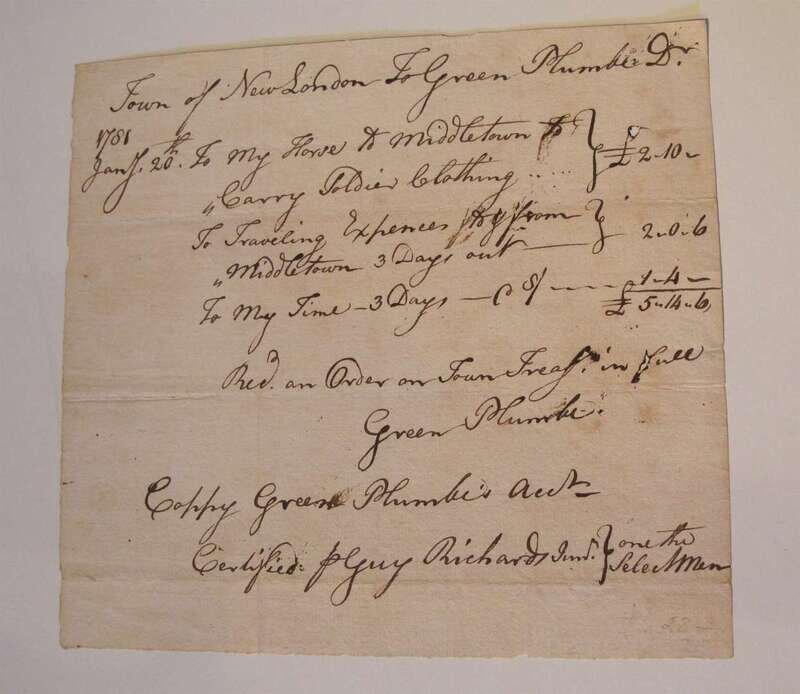 Town of New London To Green Plumbe Dr.
1781
Jany. 20th. To My Horse to Middletown to } £ 2 - 10 -
" Carry Soldier Clothing .....
To Traveling Expences to & from } 2 - 0 - 6
" Middletown 3 Days out
To My Time - 3 Days - @ 8/ ---- 1 - 4 -
£ 5 - 14 - 6
Recd. an Order on Town Treasr. in full
Green Plumbe
Coppy Green Plumbe's Acct
Certified: ⅌ Guy Richards Junr. } one the
Select Men